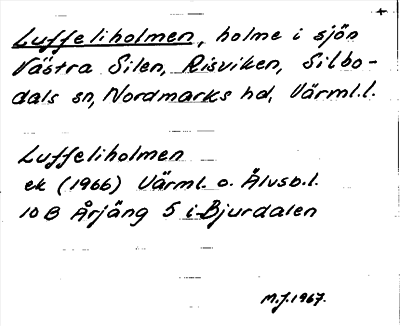 +
Luffeliholmen, holme i sjön
Västra Silen, Risviken, Silbo-
dals sn, Nordmarks hd, Värml.l.
Luffeliholmen
ek (1966) Värml. o. Älvsb.l.
10 B Årjäng 5 i Bjurdalen
M.J. 1967.